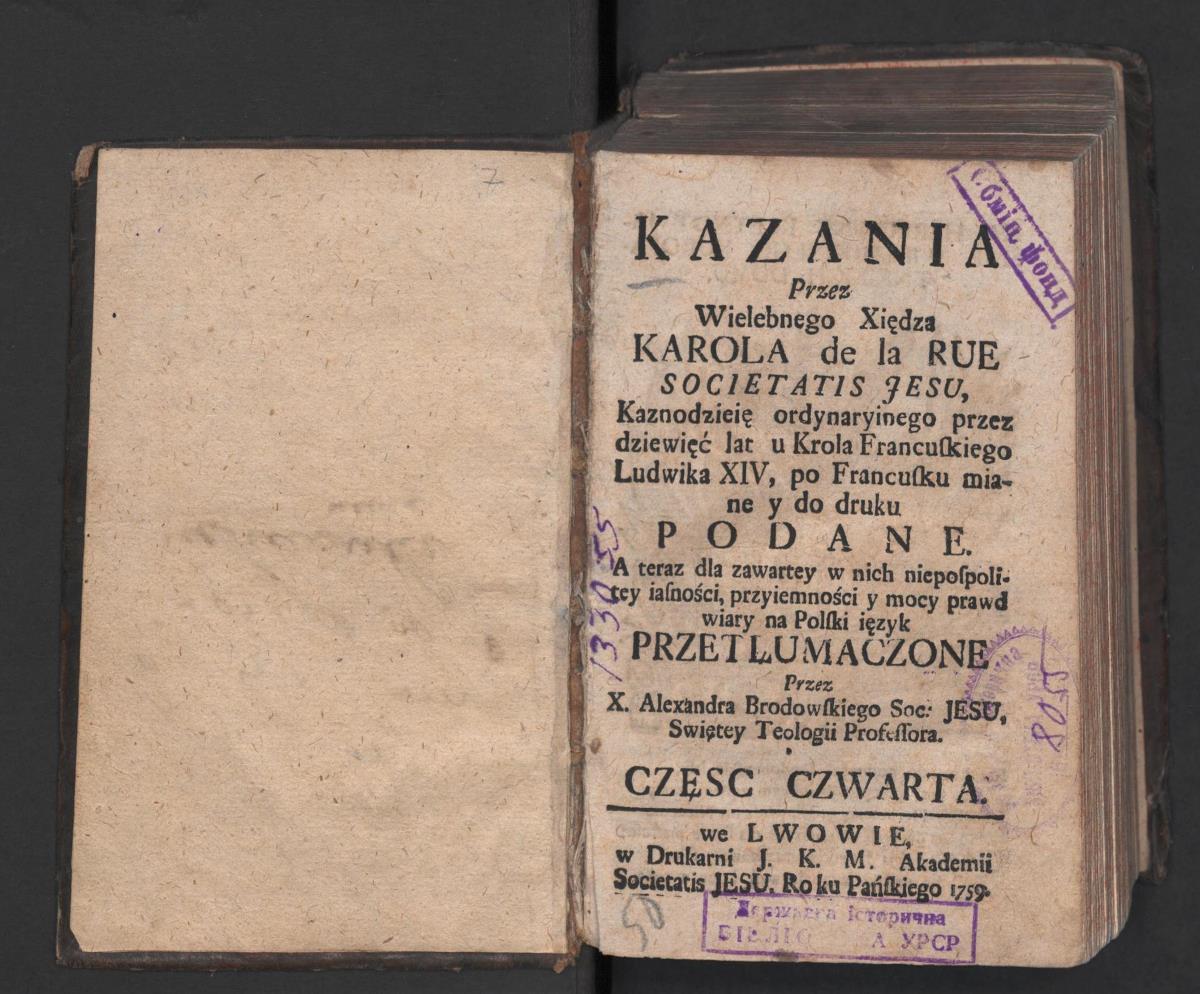 7
Обмін. фонд
KAZANIA
Przez
Wielebnego Xiędza
KAROLA de la RUE
SOCIETATIS JESU,
Kaznodzieię ordynaryinego przez
dziewięć lat u Krola Francuſkiego
Ludwika XIV, po Francuſku mia-
ne y do druku
PODANE.
A teraz dla zawartey w nich niepoſpoli-
tey iaſności, przyiemności y mocy prawd
wiary na Polſki ięzyk
PRZETŁUMACZONE
Przez
X. Alexandra Brodowſkiego Soc: JESU,
Swiętey Teologii Profeſſora.
CZĘSC CZWARTA.
we LWOWIE,
w Drukarni J. K. M. Akademii
Societatis JESU. Roku Pańſkiego 1759.
133055
8055
50
Державна історична
БІБЛІОТЕКА УРСР